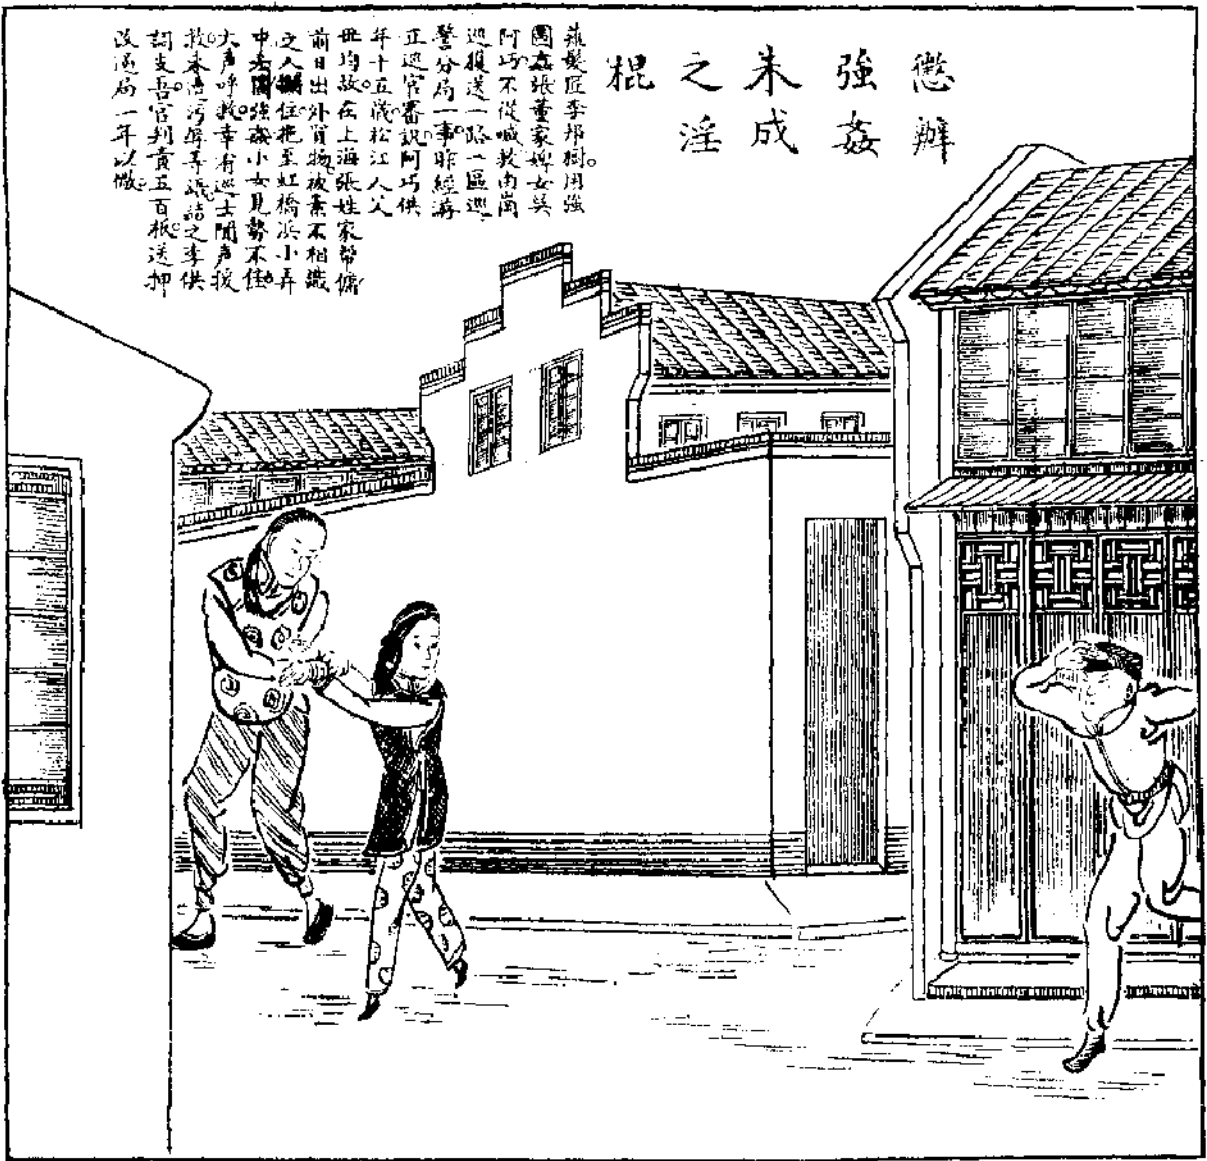 懲辦
強姦
未成
之淫
棍
薙髮匠李邦樹。用強
圖姦張董家婢女吳
阿巧。不從喊救由崗
巡獲送一路一區巡
警分局一事。昨經游
正巡官審訊。阿巧供
年十五歲松江人父
母均故。在上海張姓家幫傭
前日出外買物。被素不相識
之人攔住拖至虹橋浜小弄
中意圖強姦小女見勢不佳
大声呼救。幸有巡士聞声援
救未遭污辱等語。詰之李供
詞支吾。官判責五百板。送押
改過局一年以儆。